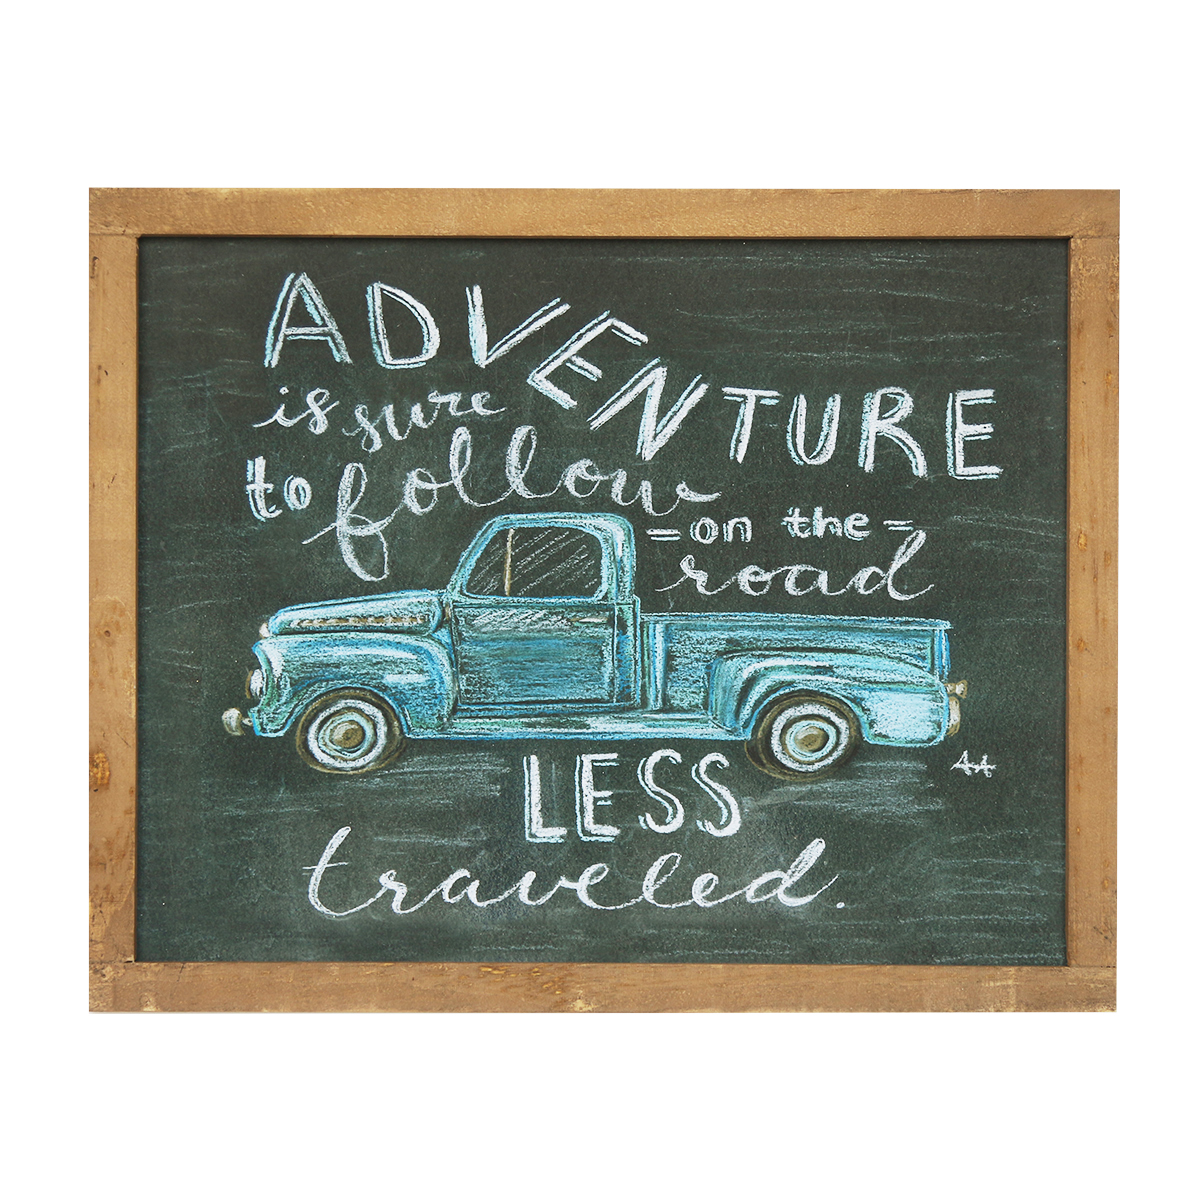 ADVENTURE
is sure
to follow
=on the=
road
LESS
traveled.
AA